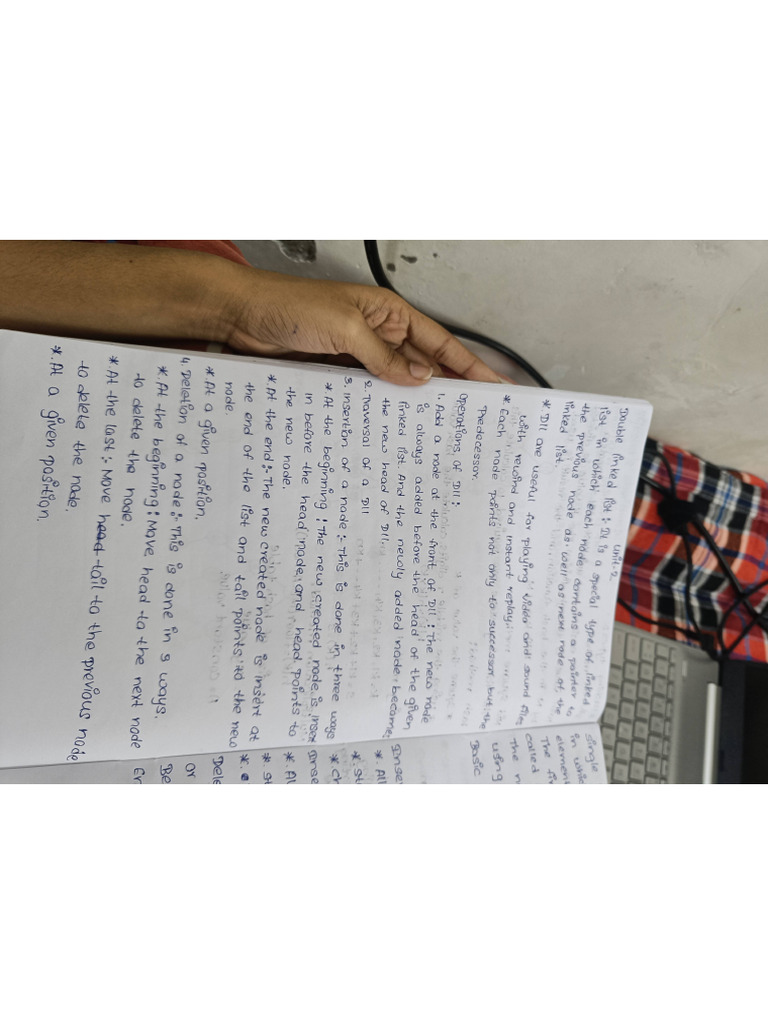 Unit-2.
Double linked list : DL is a special type of linked
list in which each node contains a pointer to
the previous node as well as next node of the
linked list.
* Dll are useful for playing video and sound files
with rewind and instant replay.
* Each node points not only to successor but the
Predecessor.
Operations of Dll :
1. Add a node at the front of Dll : The new node
is always added before the head of the given
linked list. And the newly added node becomes
the new head of Dll.
2. Traversal of a Dll
3. Insertion of a node :- This is done in three ways
* At the beginning : The new created node is inser
in before the head node and head points to
the new node.
* At the end :- The new created node is insert at
the end of the list and tail points to the new
node.
* At a given position.
4. Deletion of a node :- This is done in 3 ways.
* At the beginning : Move head to the next node
to delete the node.
* At the last : Move head tail to the previous node
to delete the node.
* At a given position.
single
in which
element
The fi
called
The n
using
Basic
Inser
* All
* st
* ch
Inser
* Al
* st
*
Dele
or
Be
En